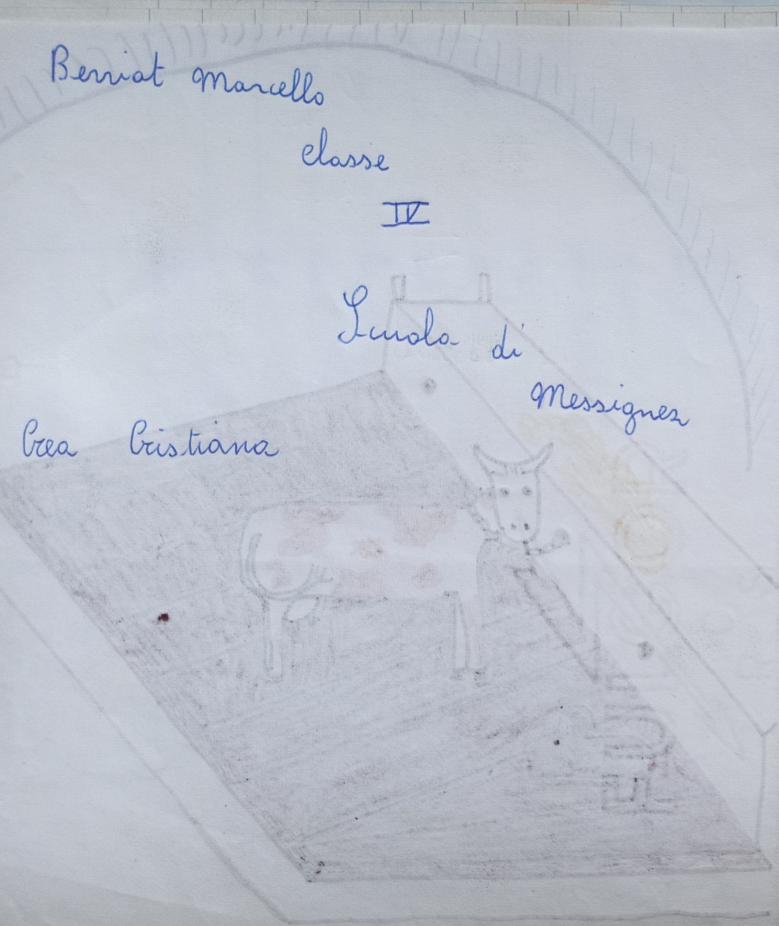 Berriat Marcello
classe
IV
Scuola di
Messignez
Crea Cristiana